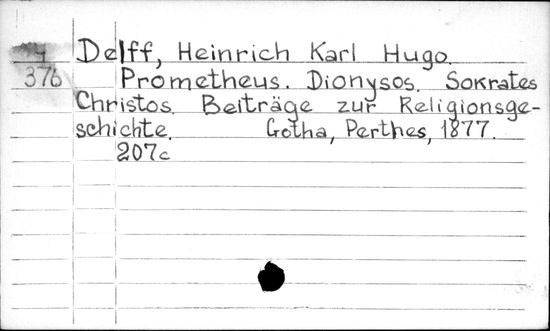 Delff, Heinrich Karl Hugo.
376 Prometheus. Dionysos. Sokrates
Christos. Beiträge zur Religionsge-
schichte. Gotha, Perthes, 1877.
207c